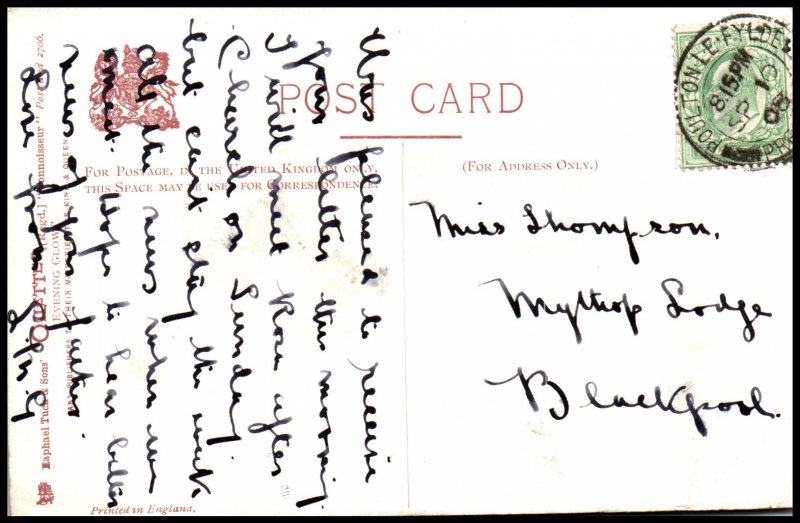 POST CARD
FOR POSTAGE, IN THE UNITED KINGDOM ONLY,
THIS SPACE MAY BE USED FOR CORRESPONDENCE.
(FOR ADDRESS ONLY.)
POULTON-LE-FYLDE
8.15PM
SP 10
08
Miss Thompson,
Mythop Lodge
Blackpool.
Was pleased to receive
your letter this morning
I will meet you after
Church on Sunday
but can't stay the week
all the news when we
meet. Hope to hear better
news of your father.
Love from
Raphael Tuck & Sons' "OILETTE" [Regd.] "Connoisseur" Postcard 2706.
"EVENING GLOW."
ART PUBLISHERS TO THEIR MAJESTIES THE KING & QUEEN
Printed in England.